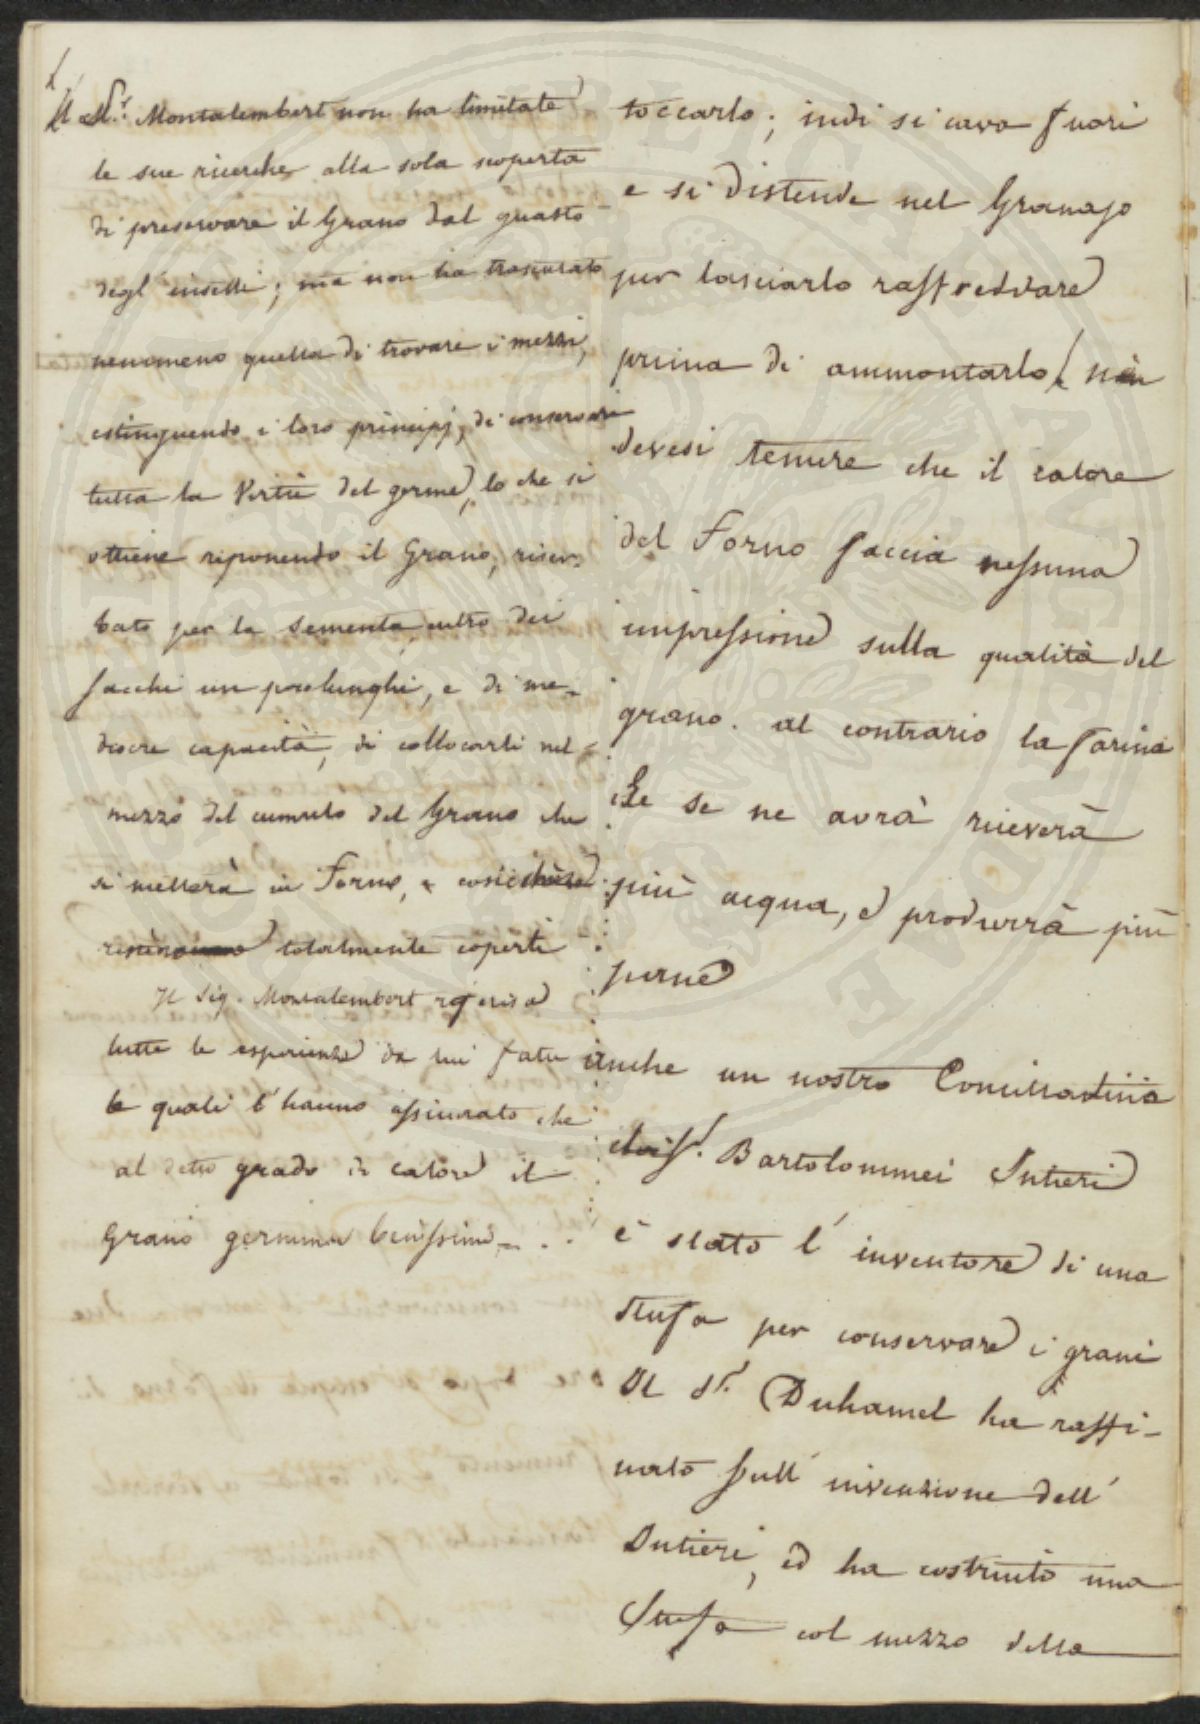 Il Sr. Montalembert non ha limitate
le sue ricerche alla sola scoperta
di preservare il Grano dal guasto
degl' insetti; ma non ha trascurato
nenomeno quella di trovare i mezzi,
estinguendo i loro principj, di conservare
tutta la Virtù del germe, lo che si
ottiene riponendo il Grano, riser-
bato per la Sementa, entro dei
sacchi un po lunghi, e di me-
diocre capacità, di collocarli nel
mezzo del cumulo del Grano che
si metterà in Forno, e così
totalmente coperti
Il Sig. Montalembert riferisce
tutte le esperienze da lui fatte
le quali l'hanno assicurato che
al detto grado di calore il
Grano germina benissimo
toccarlo; indi si cava fuori
e si distende nel Granajo
per lasciarlo raffreddare
prima di ammontarlo. Non
devesi temere che il calore
del Forno faccia nessuna
impressione sulla qualità del
grano. al contrario la farina
che se ne avrà riceverà
più acqua, e produrrà più
pane
Anche un nostro Concittadino
Bartolommei Intieri
è stato l'inventore di una
stufa per conservare i grani
Il Sr. Duhamel ha raffi-
nato sull' invenzione dell'
Intieri, ed ha costruito una
Stufa col mezzo della
LA PUBLICA LUCENSE